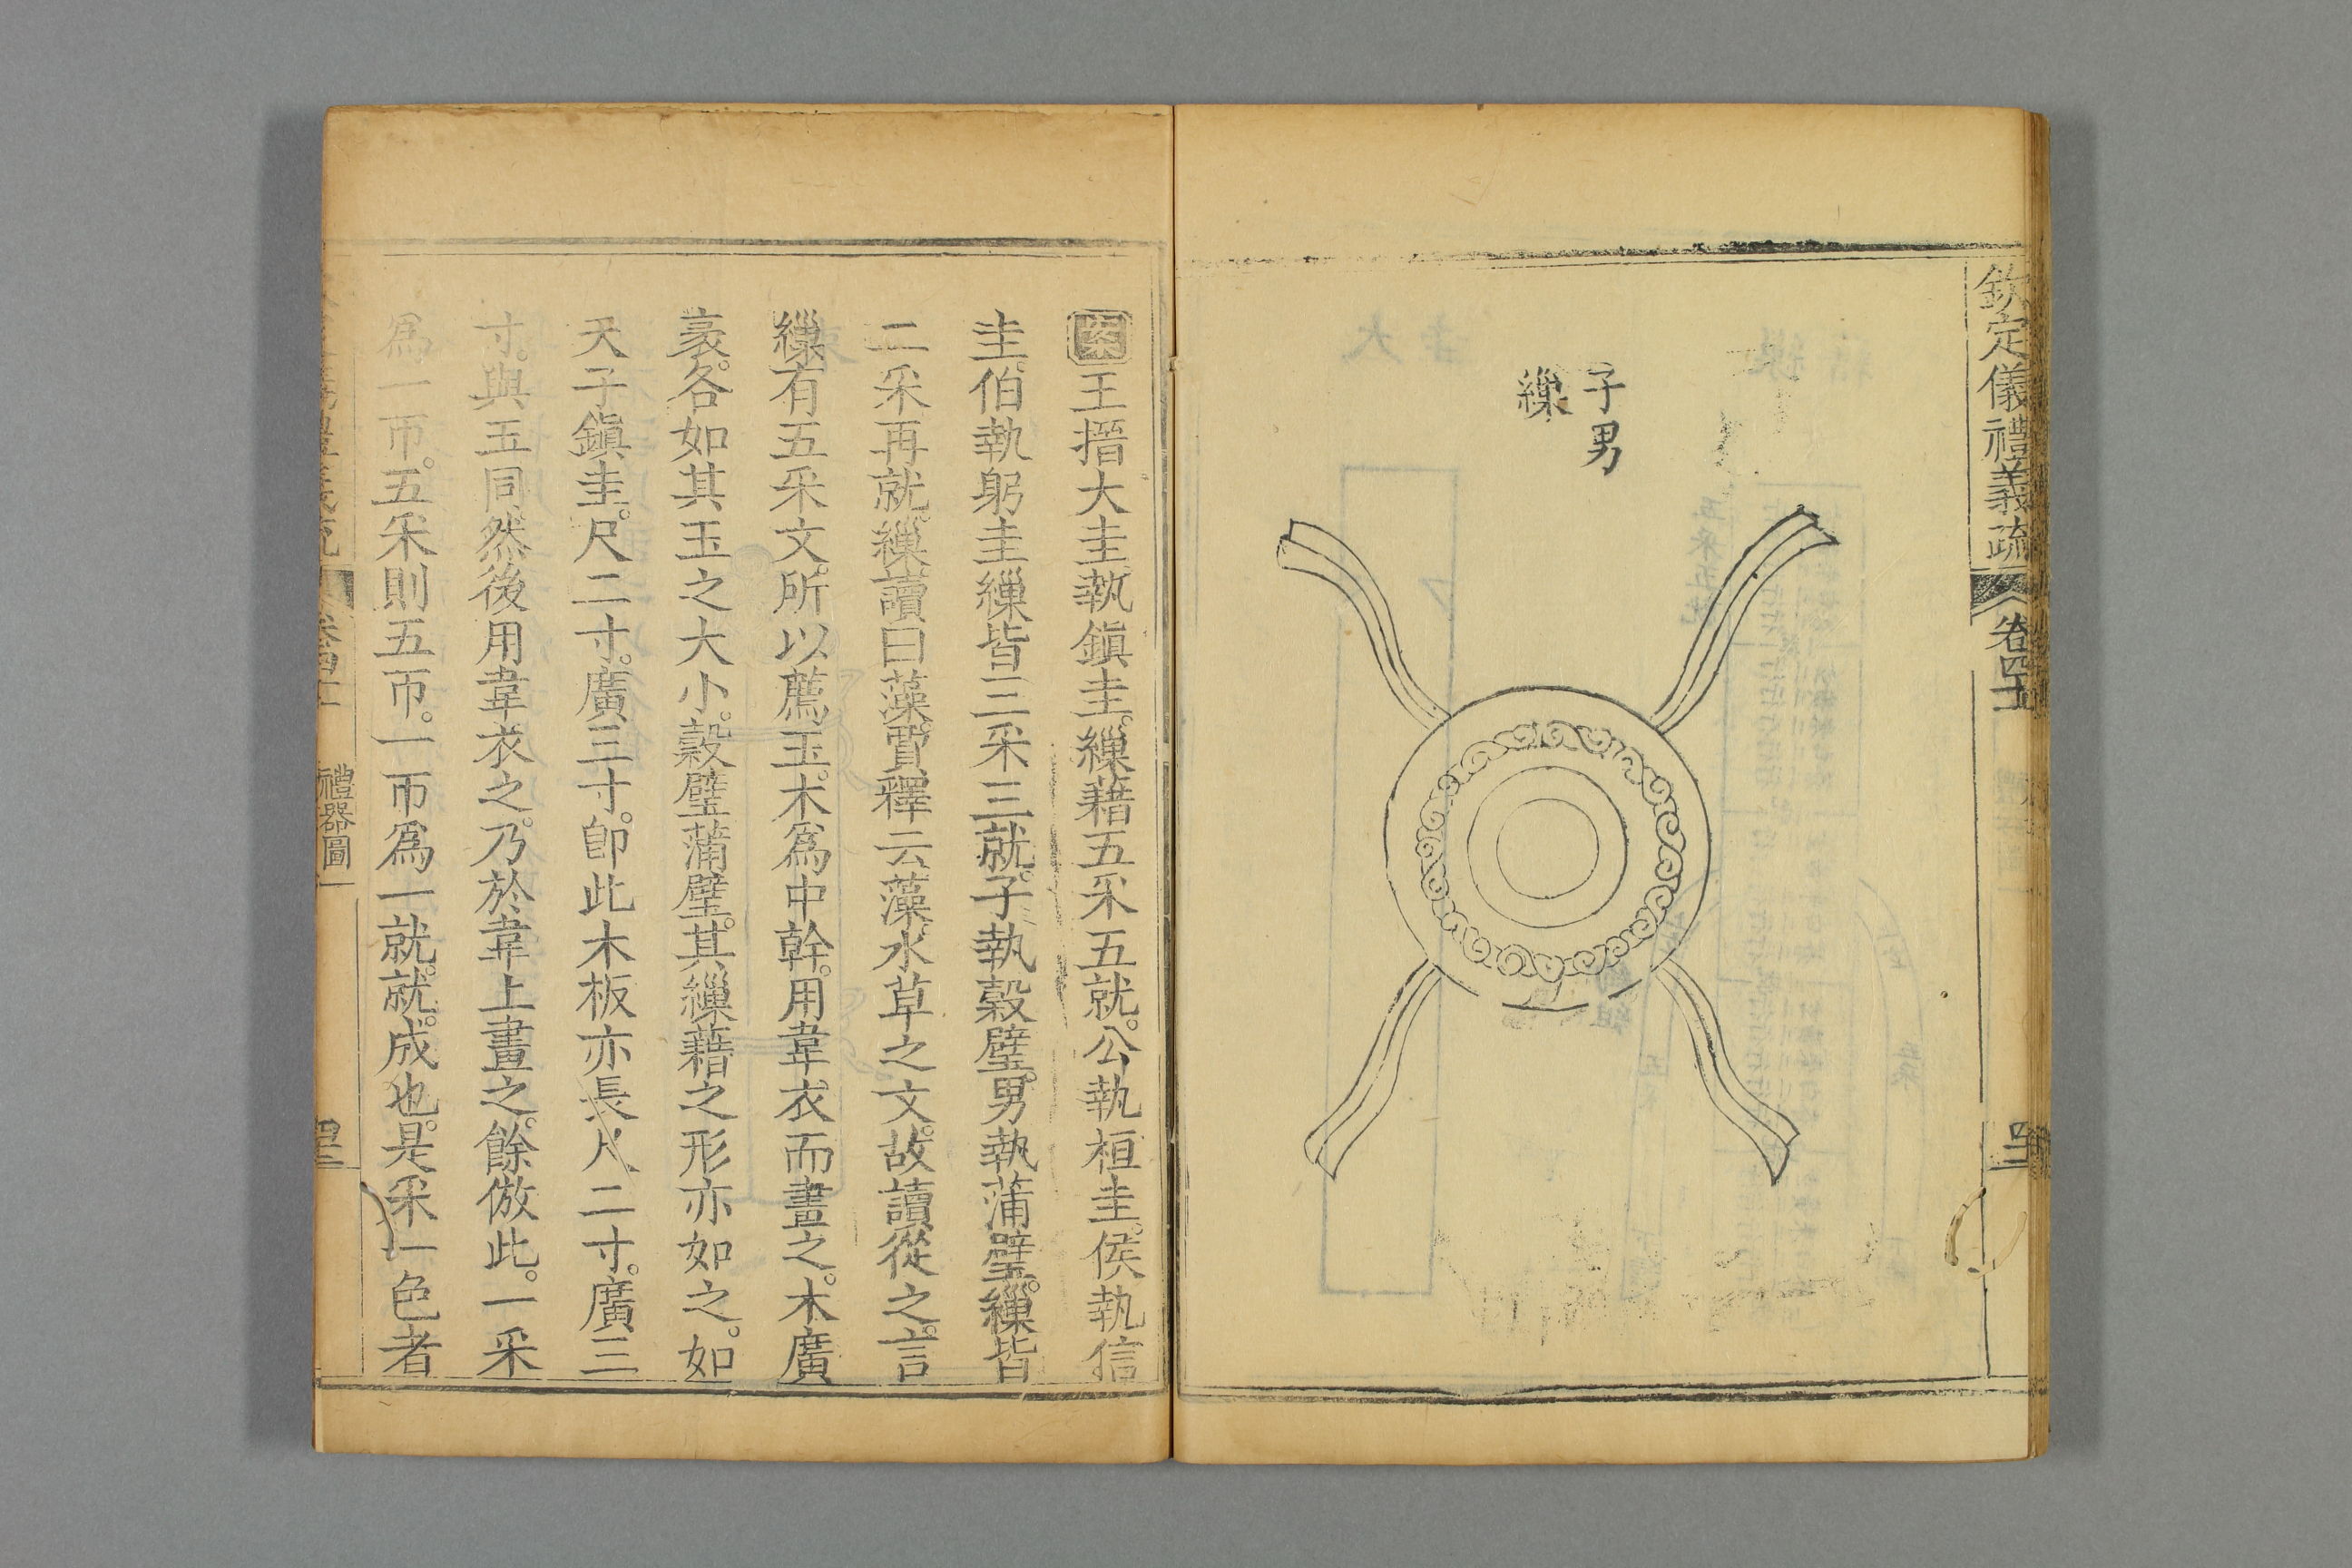 欽定儀禮義疏
卷四十五
子男
繅
案王搢大圭執鎭圭。繅藉五采五就。公執桓圭。侯執信
圭。伯執躬圭繅皆三采三就。子執穀璧。男執蒲璧。繅皆
二采再就。繅。讀曰藻。賈釋云藻。水草之文。故讀從之。言
繅有五采文。所以薦玉。木爲中幹。用韋衣而畫之。木廣
袤。各如其玉之大小。穀璧蒲璧。其繅藉之形亦如之。如
天子鎭圭。尺二寸。廣三寸。卽此木板亦長尺二寸。廣三
寸。與玉同。然後用韋衣之。乃於韋上畫之。餘倣此。一采
爲。一帀。五采則五帀。一帀爲一就。就。成也。是采一色者
禮器圖